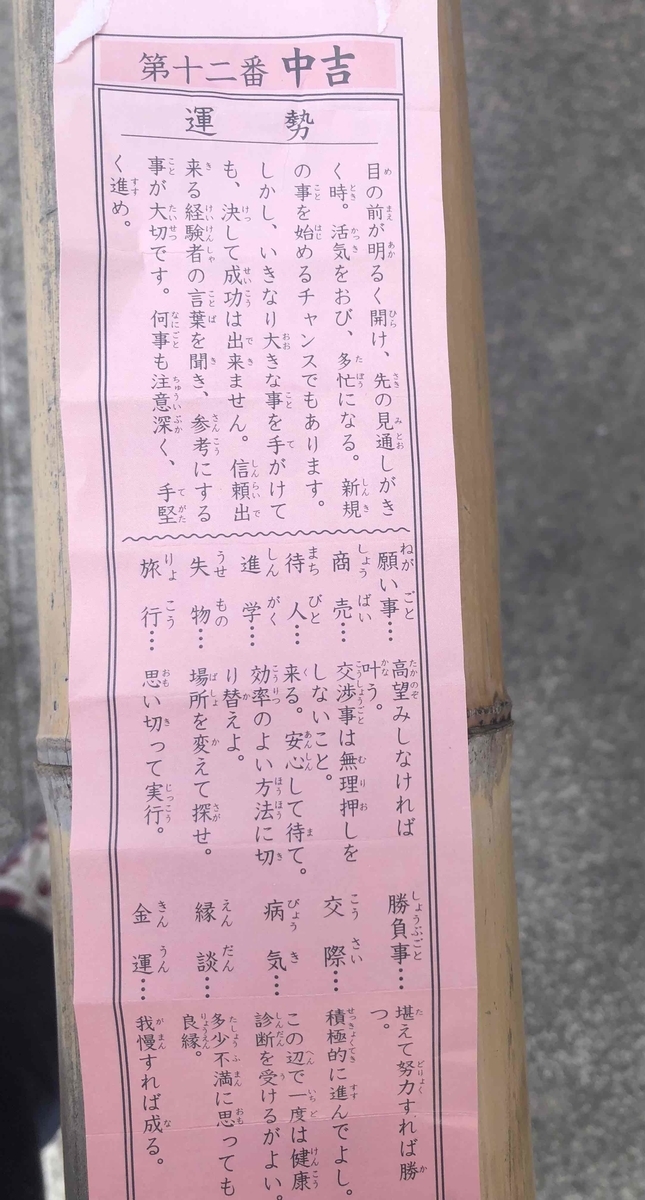 第十二番 中吉
運勢
目の前が明るく開け、先の見通しがき
く時。活気をおび、多忙になる。新規
の事を始めるチャンスでもあります。
しかし、いきなり大きな事を手がけて
も、決して成功は出来ません。信頼出
来る経験者の言葉を聞き、参考にする
事が大切です。何事も注意深く、手堅
く進め。
願い事…高望みしなければ
叶う。
商売…交渉事は無理押しを
しないこと。
待人…来る。安心して待て。
進学…効率のよい方法に切
り替えよ。
失物…場所を変えて探せ。
旅行…思い切って実行。
勝負事…堪えて努力すれば勝
つ。
交際…積極的に進んでよし。
病気…この辺で一度は健康
診断を受けるがよい。
縁談…多少不満に思っても
良縁。
金運…我慢すれば成る。